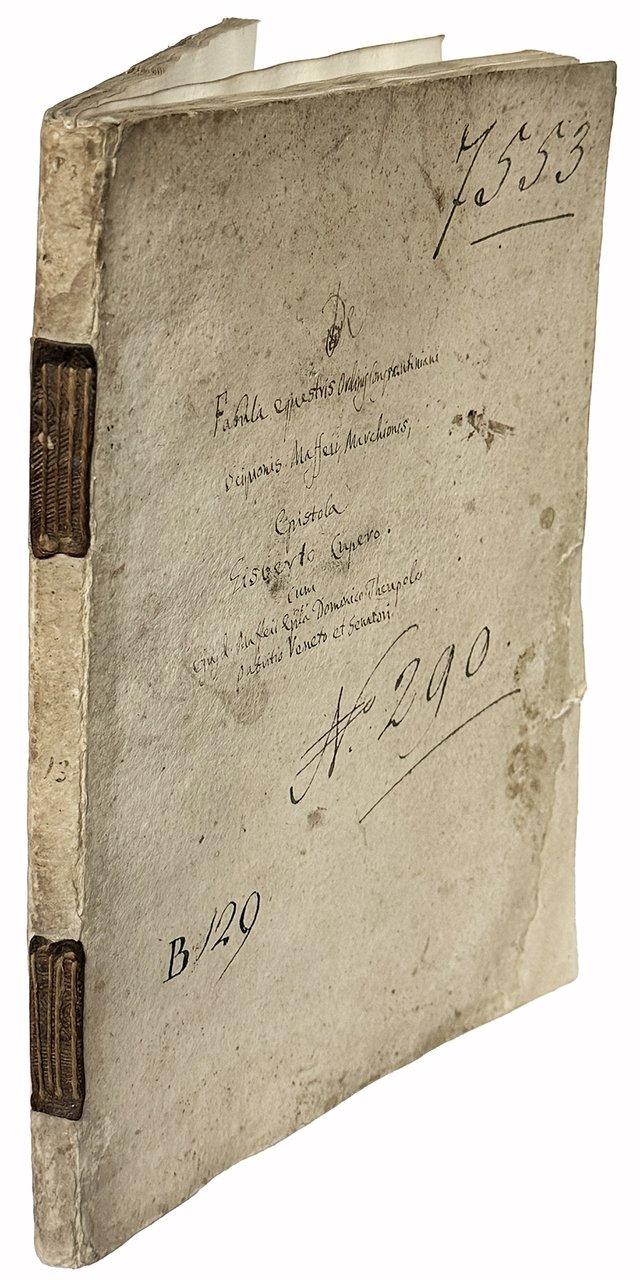 7553
De
Fabula equestris Ordinis Constantiniani
Scipionis Maffeii Marchionis,
Epistola
Gisberto Cupero.
Cum
Maffeii Domenico Theupolo
patritio Veneto et Senatori.
No. 290.
B 129
13